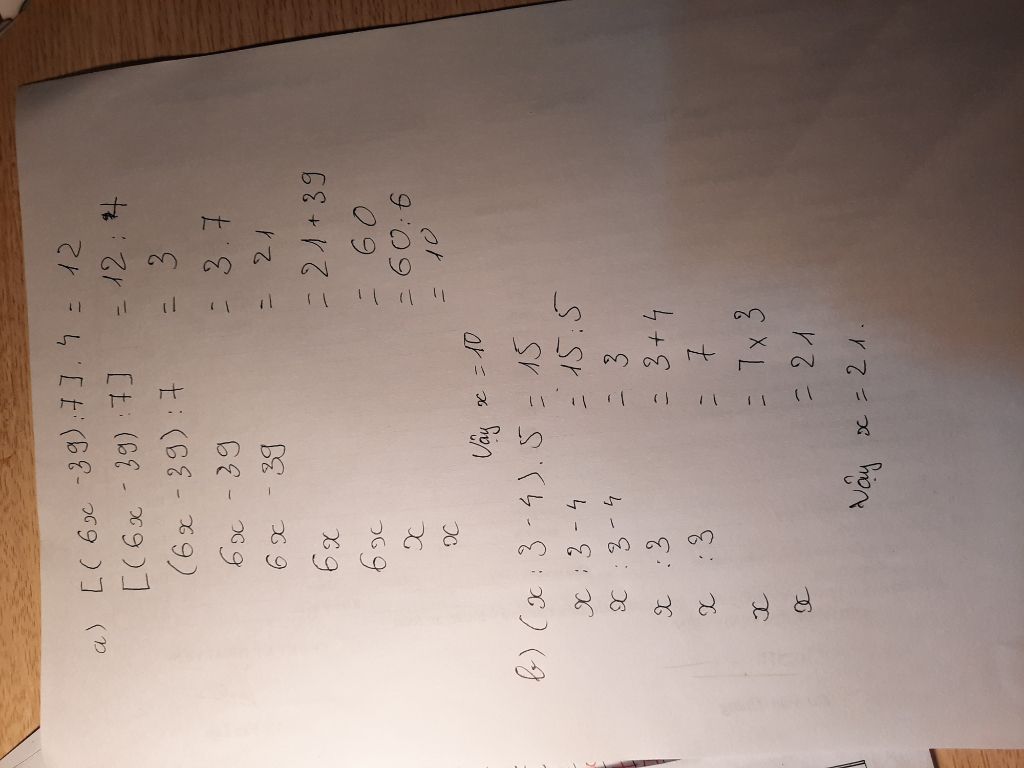 a) [(6x - 39) : 7] . 4 = 12
[(6x - 39) : 7] = 12 : 4
(6x - 39) : 7 = 3
6x - 39 = 3 . 7
6x - 39 = 21
6x = 21 + 39
6x = 60
x = 60 : 6
x = 10
Vậy x = 10
b) (x : 3 - 4) . 5 = 15
x : 3 - 4 = 15 : 5
x : 3 - 4 = 3
x : 3 = 3 + 4
x : 3 = 7
x = 7 x 3
x = 21
Vậy x = 21.